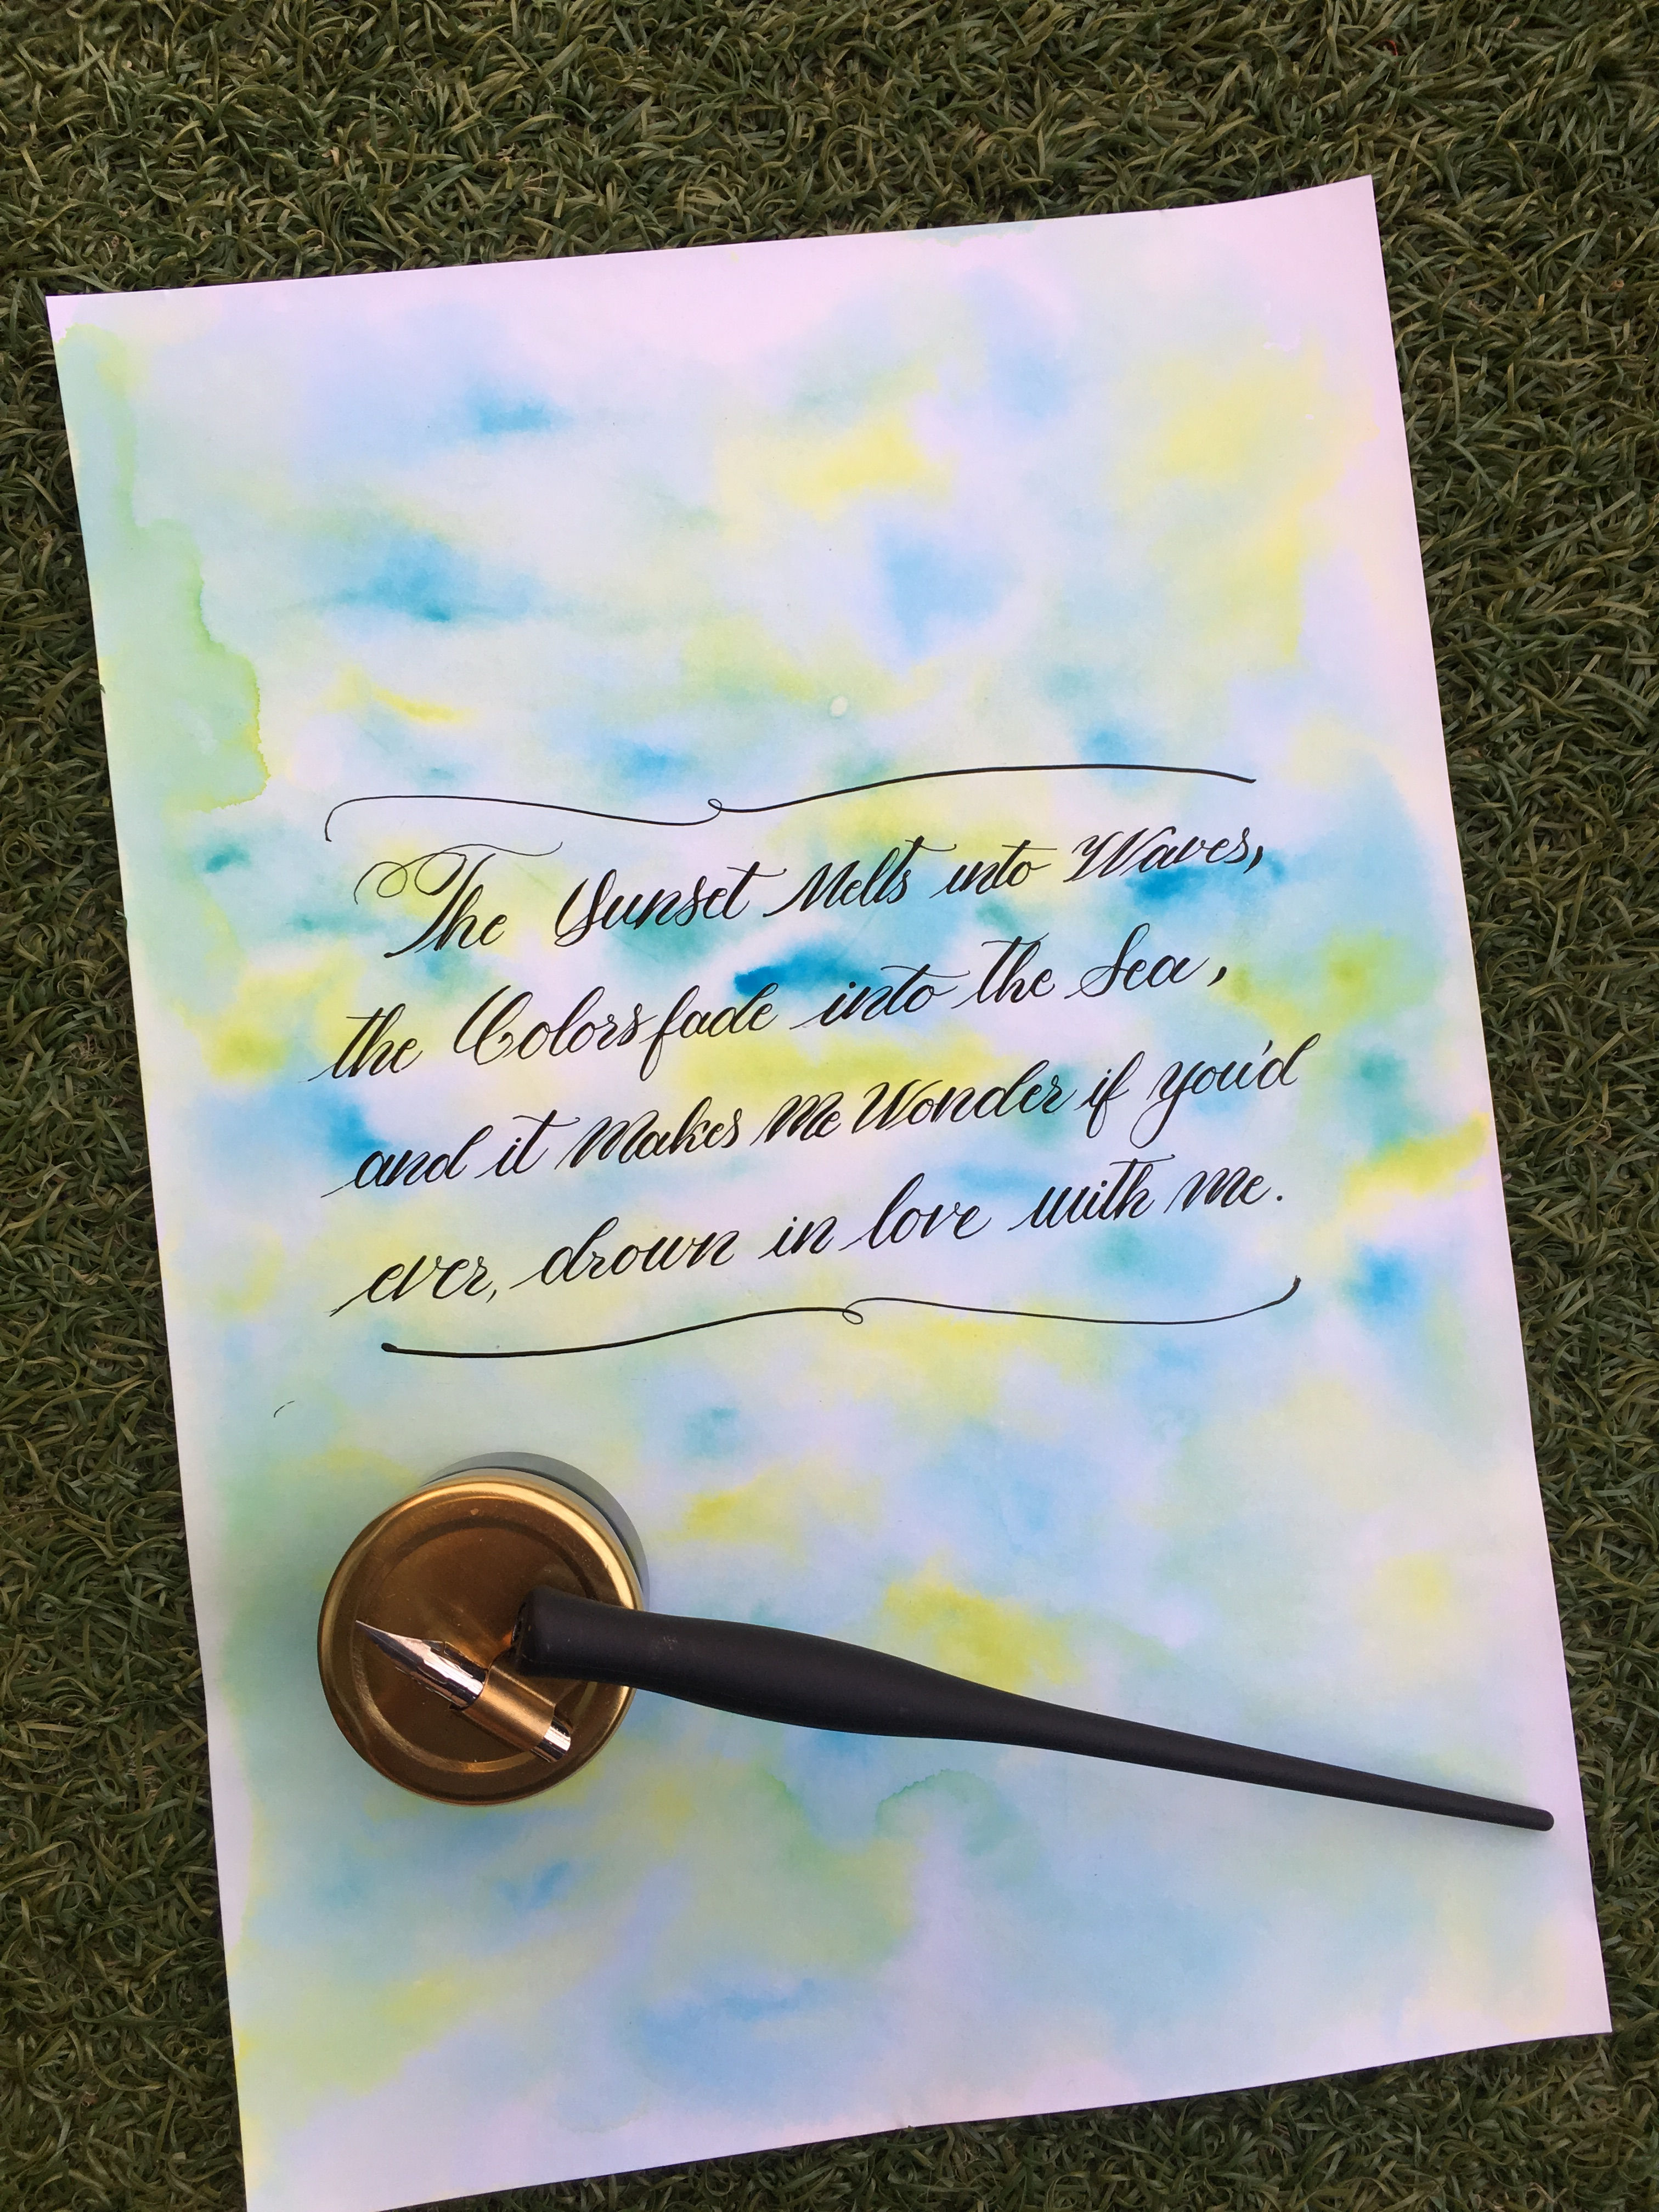 The Sunset Melts into Waves,
the Colors fade into the Sea,
and it Makes Me Wonder if you'd
ever, drown in love with me.